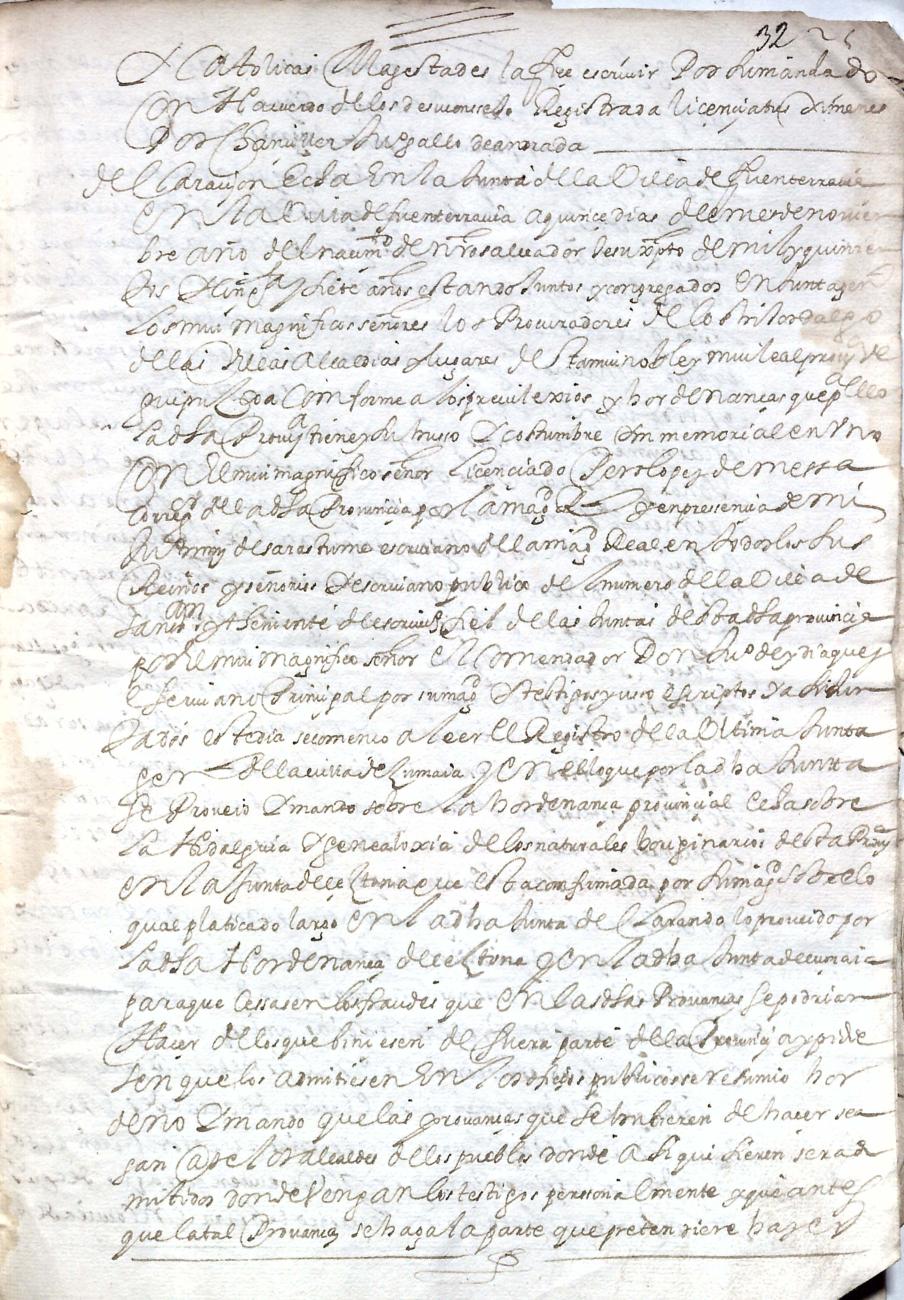 32
& Catolicas Magestades la fize escrivir Por su mandado
Con Hacuerdo de los de su conssejo Registrada licenciatus Ximenes
Por Chanciller Juº gallo de andrada
declaracion Echa En la Junta de la Villa de fuenterravia
En la Villa de fuenterravia a quince dias de el mes de noviem
bre año del nacimº de nrō salvador Jesuxpto de mil y quinien
tos & cinqta y siete años estando Juntos y congregados En Junta gerl
los mui magnificos señores los Procuradores de los hijosdalgo
de las Villas Alcaldias y lugares de Esta mui noble y mui leal provª de
guipuzcoa Comforme a los previlexios y hordenanças que pª ello
la dha Provª tiene y su husso & costumbre inmemorial en Uno
Con El mui magnifico señor Licenciado Pero lopez de messa
Corregr de la dha Provincia por la magd Rl y en presencia de mi
de sarastume escrivano de la magd Real en todos los sus
Reinos y señorios & escrivano publico del numero de la Villa de
san & theniente de escrivº fiel de las Juntas de Esta dha provincia
por El mui magnifico señor el Comendador Don Juº de ydiaquez
escriviano Principal por su magd & testigos yusso escriptos
este dia se començo a leer El Registro de la Ultima Junta
ger de la villa de Çumaia y en ello que por la dha Junta
se Proveio & mando sobre la hordenança provincial Echa sobre
la Hidalguia & genealoxia de los naturales de Esta Provª
en la Junta de cestona que Esta confirmada por su magd sobre lo
qual platicado largo En la dha Junta declarando lo proveido por
la dha Hordenança de cestona y en la dha Junta de çumaia
para que Cessasen los fraudes que En las dhas Provanças se podrian
Hacer de los que biniesen de fuera parte de la Provincia y pidie
sen que los admitiesen En los ofiçios publicos se resumio hor
deno & mando que las provanças que se hubieren de hacer sea
gan ante los alcaldes de los pueblos donde assi quisieren ser ad
mitidos donde Vengan los testigos personalmente y que antes
que la tal Provança se haga la parte que pretendiere hacer